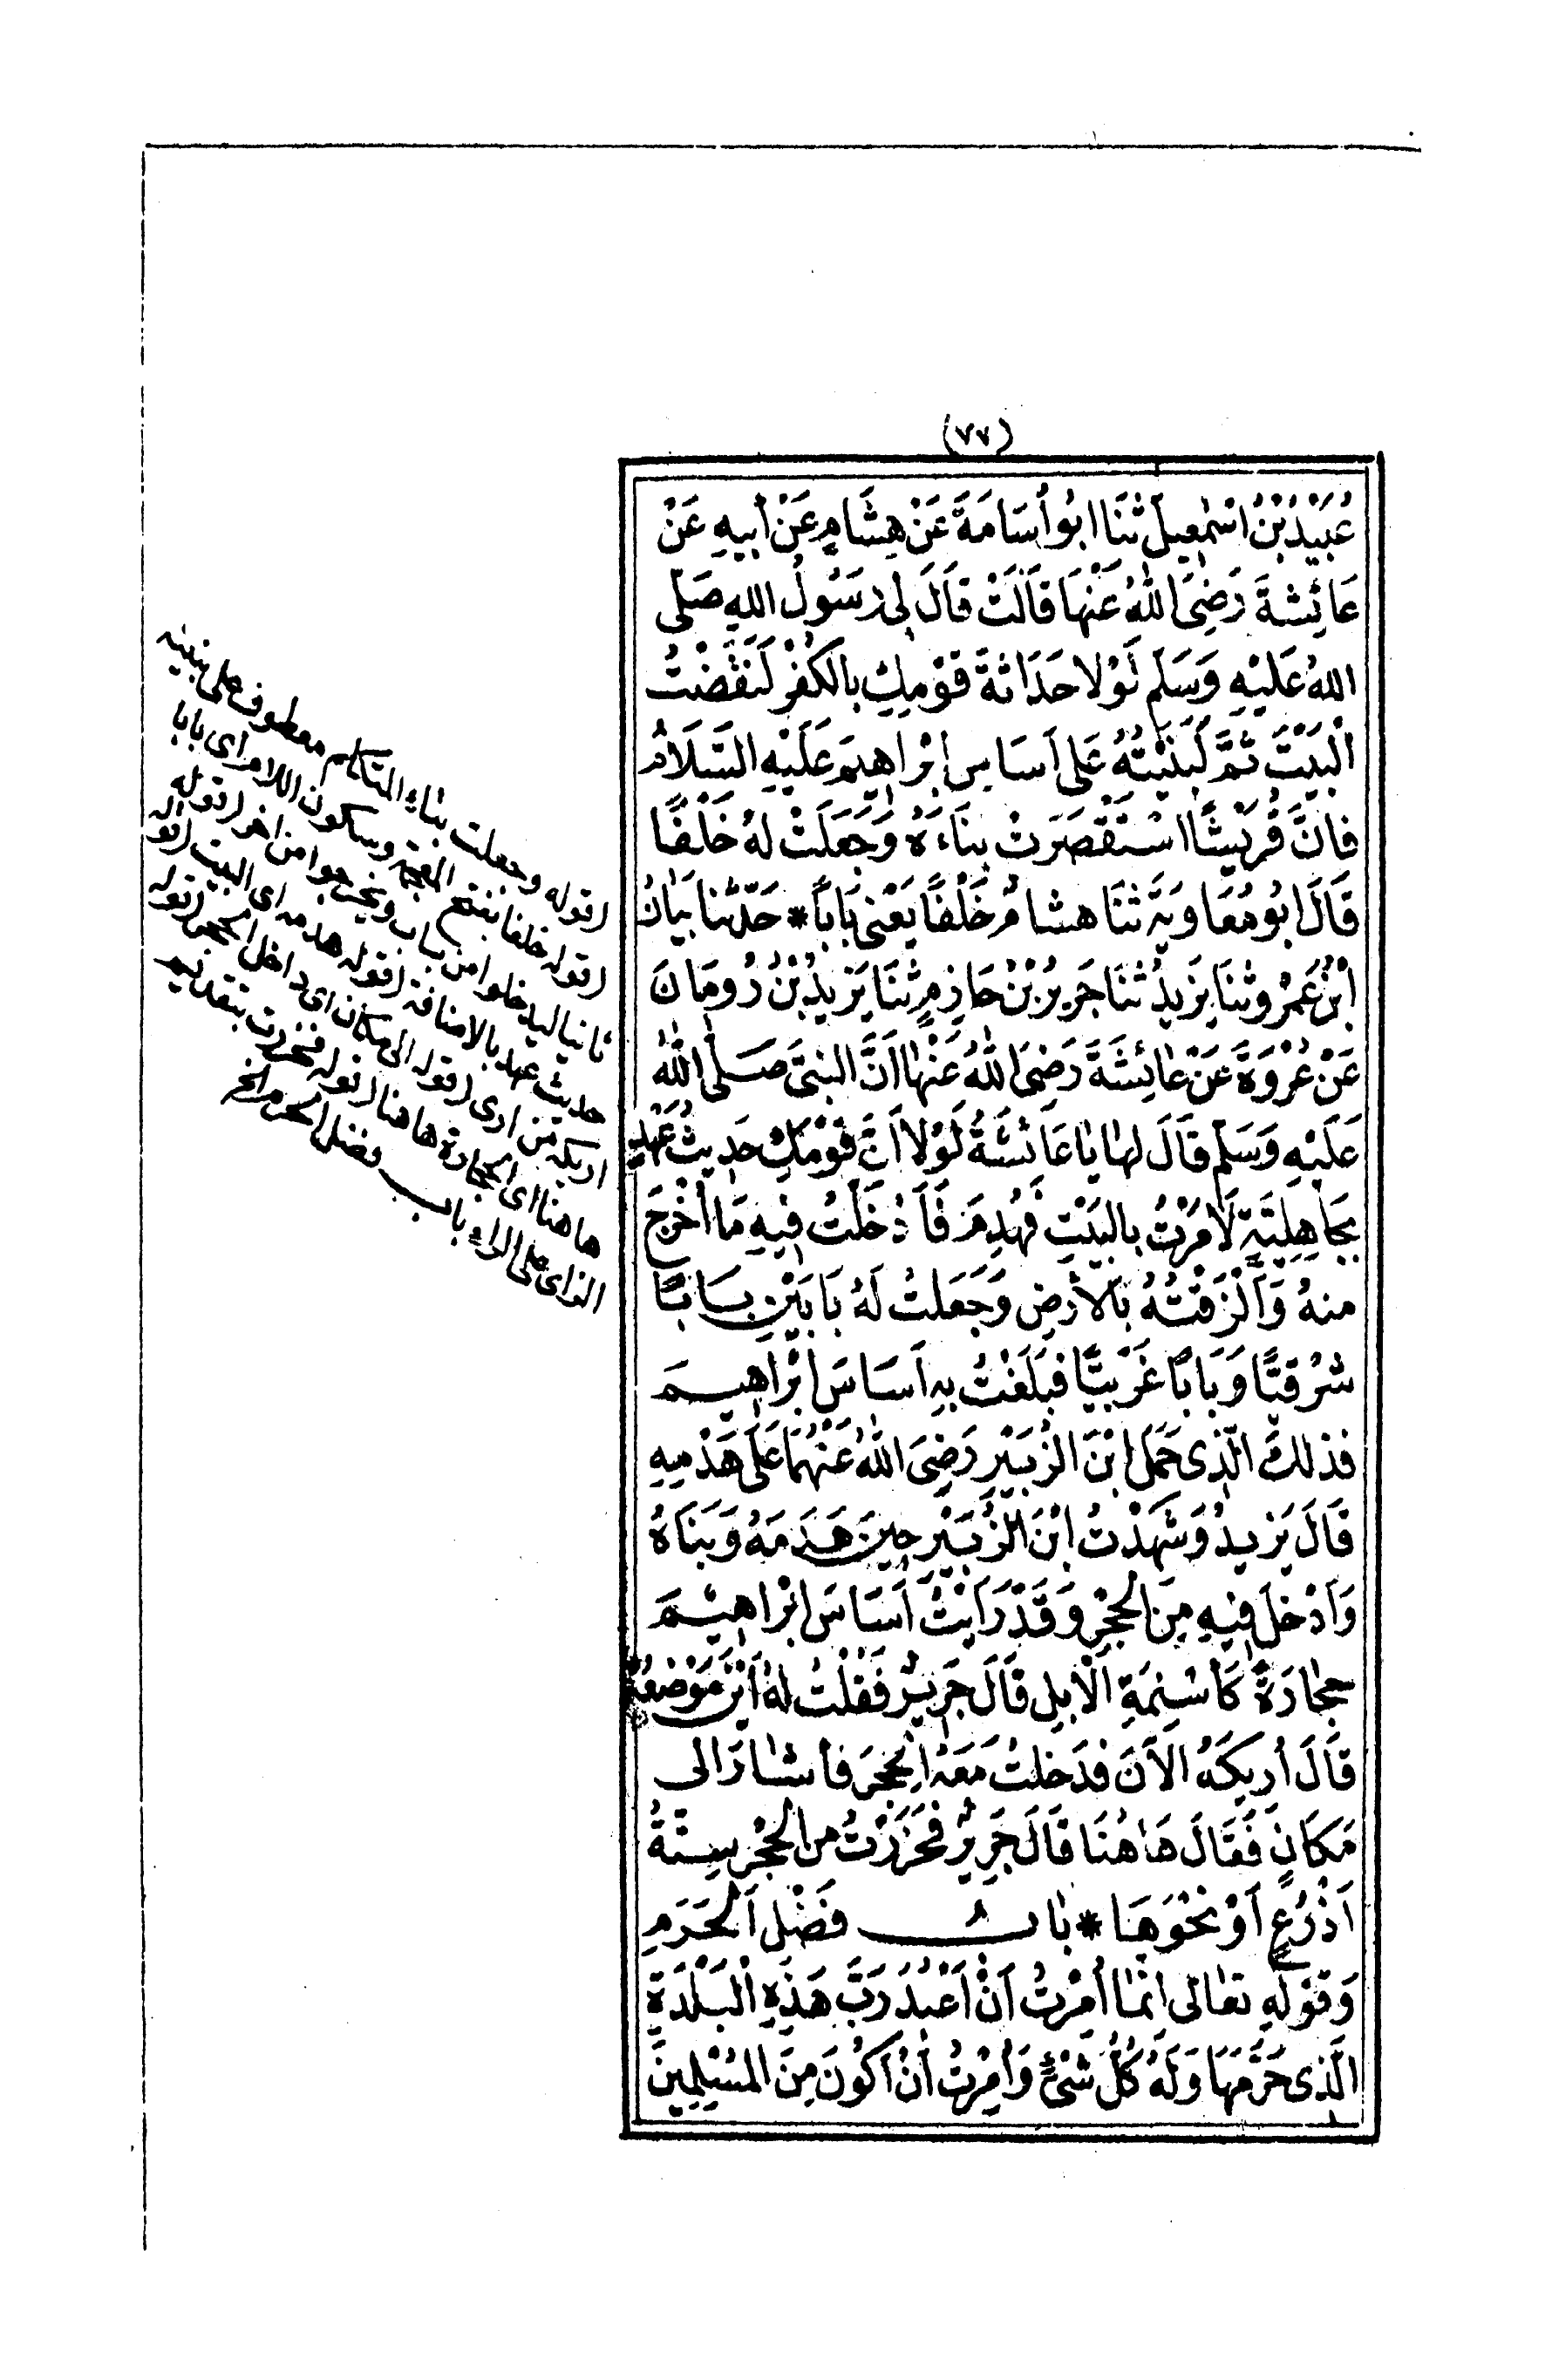 (٧٧)
عُبَيْدُ بْنُ اسْمٰعِيلَ ثَنَا ابُو أُسَامَةَ عَنْ هِشَامٍ عَنْ أَبِيهِ عَنْ
عَائِشَةَ رَضِيَ اللّٰهُ عَنْهَا قَالَتْ قَالَ لِي رَسُولُ اللهِ صَلَّى
اللهُ عَلَيْهِ وَسَلَّمَ لَوْلا حَدَاثَةَ قَوْمِكِ بِالكُفْرِ لَنَقَضْتُ
الْبَيْتَ ثُمَّ لَبَنَيْتُهُ عَلَى اَسَاسِ ابْرَاهِيمَ عَلَيْهِ السَّلَامُ
فَانَّ قُرَيْشًا اسْتَقْصَرَتْ بِنَاءَهُ وَجَعَلَتْ لَهُ خَلْفًا
قَالَ ابُو مُعَاوِيَةَ ثَنَا هشامٌ خَلْفًا يَعْنِى بَابًا * حَدَّثَنَا بَيَانُ
ابْنُ عَمْرٍو ثَنَا يَزِيدُ ثَنَا جَرِيرُ بْنُ حَازِمٍ ثَنَا يَزِيدُ بْنُ رُومَانَ
عَنْ عُرْوَةَ عَنْ عَائِشَةَ رَضِيَ اللّٰهُ عَنْهَا اَنَّ النبِىَّ صَلَّى اللّٰهُ
عَلَيْهِ وَسَلَّمَ قَالَ لهَا يَا عَائِشَةُ لَوْلَا اَنَّ قَوْمَكِ حَدِيثُ عَهْدٍ
بِجَاهِلِيَّةٍ لَاَمَرْتُ بِالبَيْتِ فَهُدِمَ فَاَدْخَلْتُ فِيهِ مَا اُخْرِجَ
منهُ وَاَلْزَقْتُهُ بِالاَرْضِ وَجَعَلتُ لَهُ بَابَيْنِ بَابًا
شَرْقِيًّا وَبَابًا غَرْبِيًّا فَبَلَغْتُ بِهِ اَسَاسَ ابْرَاهِيمَ
فذلكَ الّذِى حَمَلَ ابْنَ الزُّبَيْرِ رَضِيَ اللّٰهُ عَنْهُمَا عَلَى هَدْمِهِ
قَالَ يَزِيدُ وَشَهِدْتُ ابْنَ الزُّبَيْرِ حِينَ هَدَمَهُ وَبَنَاهُ
وَاَدْخَلَ فِيْهِ مِنَ الحِجْرِ وَقَدْ رَاَيْتُ اَسَاسَ ابْرَاهِيْمَ
حِجَارَةً كَأَسْنِمَةِ الْاِبِلِ قَالَ جَرِيرٌ فَقُلْتُ لَهُ اَيْنَ مَوْضِعُهُ
قَالَ أُرِيكَهُ الآنَ فَدَخلتُ مَعَهُ الحِجْرَ فأَشَارَ الى
مَكَانٍ فَقَالَ هَاهُنَا قَالَ جَرِيرٌ فَحَزَرْتُ مِنَ الحِجْرِ سِتَّةُ
اَذْرُعٍ اَوْ نَحْوَهَا * بَابُ فَضْلِ اَلْحَرَمِ
وَقَوْلِهِ تعَالى انّمَا أُمِرْتُ اَنْ اَعْبُدَ رَبَّ هَذِهِ الْبَلْدَةِ
الَّذِى حَرَّمَهَا وَلَهُ كُلُّ شَىْءٍ وَأُمِرْتُ أَنْ اَكُونَ مِنَ المُسْلِمِينَ
(قوله وجعلت بتاء المتكلم معطوف على بنيته
(قوله خلفا بفتح المعجمة وسكون اللام اى بابا
ثانيا ليدخلوا من باب ويخرجوا من اخر (قوله
حديث عهد بالاضافة (قوله هدمه اى البيت (قوله
اريكه من ارى (قوله الى مكان اى داخل الحجر (قوله
هاهنا اى الحجارة هاهنا (قوله فحزرت بتقديم
الزاى على الراء باب فضل الحرم الخ